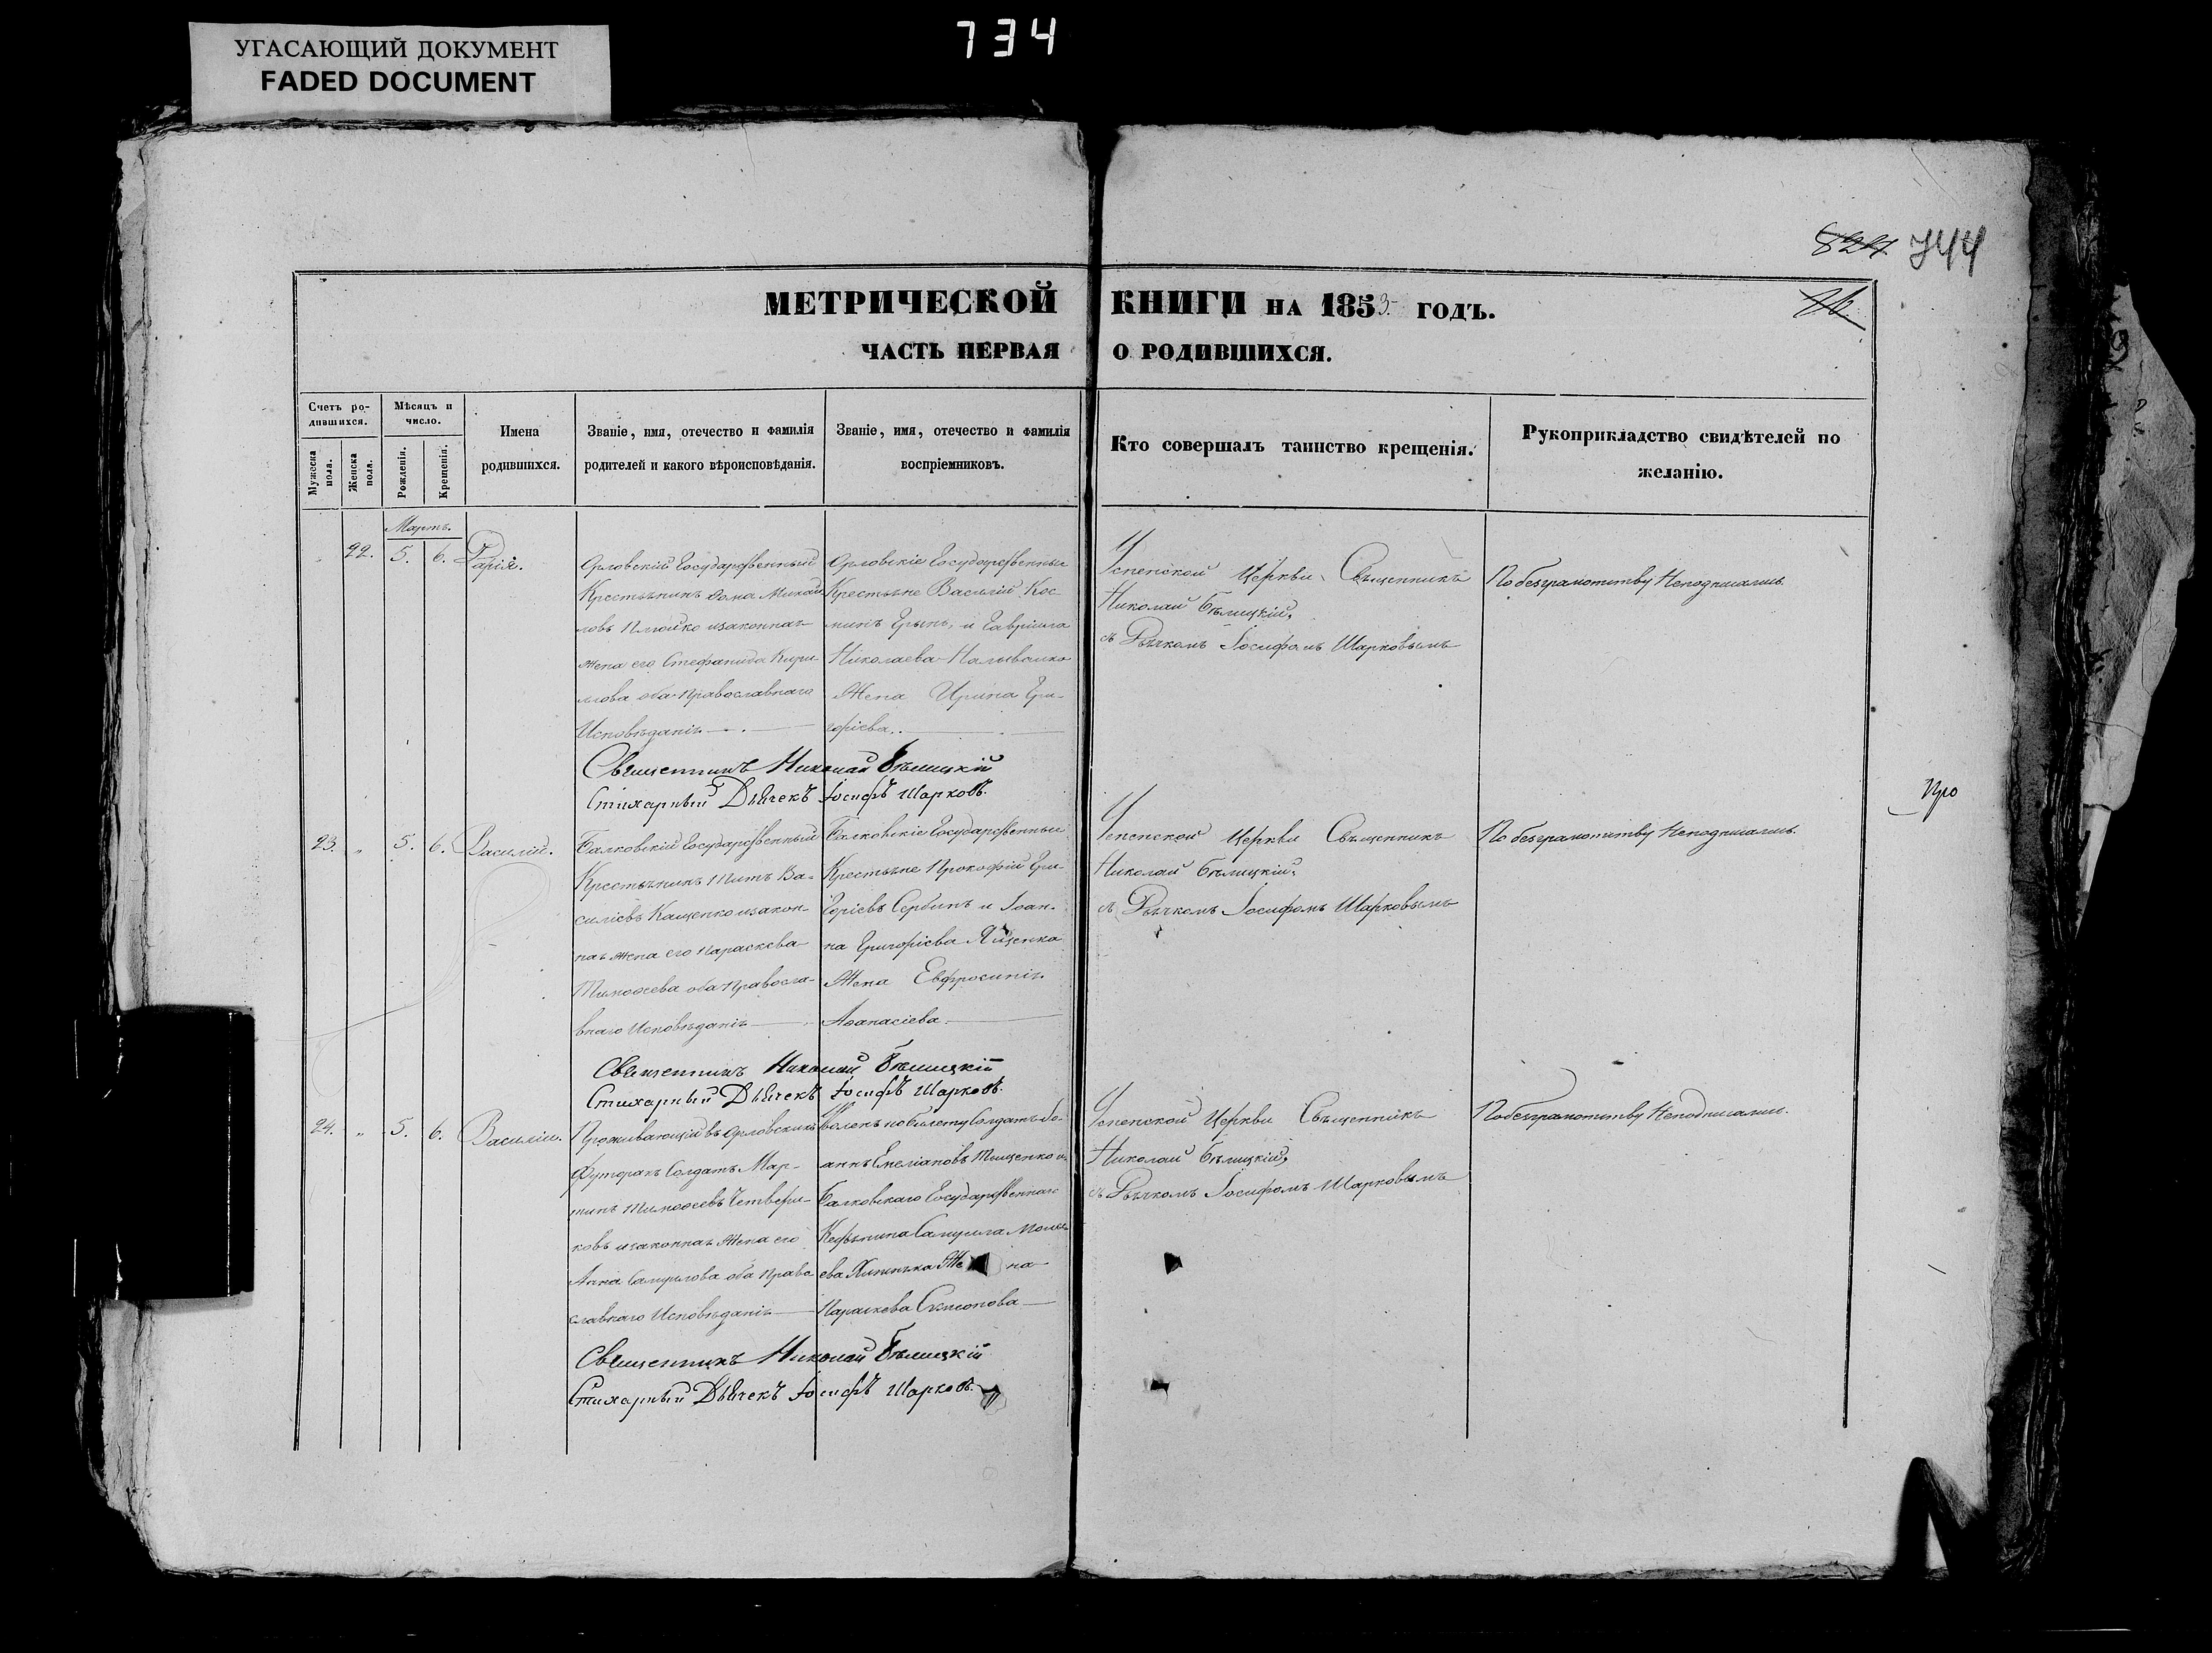 734
УГАСАЮЩИЙ ДОКУМЕНТ
FADED DOCUMENT
827 744
МЕТРИЧЕСКОЙ КНИГИ НА 1853 ГОДЪ.
ЧАСТЬ ПЕРВАЯ О РОДИВШИХСЯ.
Счетъ родившихся.
Мужеска пола.
Женска пола.
Мѣсяцъ и число.
Рожденія.
Крещенія.
Имена родившихся.
Званіе, имя, отечество и фамилія родителей и какого вѣроисповѣданія.
Званіе, имя, отечество и фамилія воспріемниковъ.
Кто совершалъ таинство крещенія.
Рукоприкладство свидѣтелей по желанію.
Мартъ.
" 22. 5. 6. Дарія.
Орловскій Государственный
Крестьянинъ Фома Михай
ловъ Плюйко изаконная
жена его Стефанида Кири
лова оба Православнаго
Исповѣданія
Орловскіе Государственные
Крестьяне Василій Кос
минъ и Гавріила
Николаева Наливайко
Жена Ирина Гри-
горіева.
Успенской Церкви Священникъ
Николай Бѣлицкій,
съ Дьячкомъ Іосифомъ Шарковымъ
По безграмотству Неподписались.
Священникъ Николай Бѣлицкій
Стихарный Дьячекъ Іосифъ Шарковъ.
23. " 5. 6. Василій.
Балковскій Государственный
Крестьянинъ Титъ Ва-
силіевъ Кащенко изакон-
ная жена его Параскева
Тимоѳеева оба Правосла-
внаго Исповѣданія
Балковскіе Государственные
Крестьяне Прокофій Гри-
горіевъ Сербинъ и Іоан-
на Григоріева Яценка
Жена Евфросинія
Аѳанасіева.
Успенской Церкви Священникъ
Николай Бѣлицкій,
съ Дьячкомъ Іосифомъ Шарковымъ
По безграмотству Неподписались.
Про
Священникъ Николай Бѣлицкій
Стихарный Дьячекъ Іосифъ Шарковъ.
24. " 5. 6. Василій.
Проживающій въ Орловскихъ
Футорахъ Солдатъ Мар-
тинъ Тимоѳеевъ Четвери-
ковъ изаконная Жена его
Анна Самуилова оба Право
славнаго Исповѣданія
по билету Солдатъ Іо-
аннъ Емеліановъ Тищенко и
Балковскаго Государственнаго
Самуила Моисе
ева Жена
Параскева Симеонова
Успенской Церкви Священникъ
Николай Бѣлицкій,
съ Дьячкомъ Іосифомъ Шарковымъ
По безграмотству Неподписались.
Священникъ Николай Бѣлицкій
Стихарный Дьячекъ Іосифъ Шарковъ.